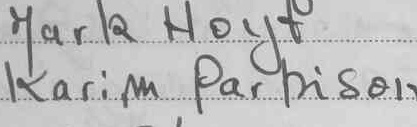 Mark Hoyt
Karim Parhison